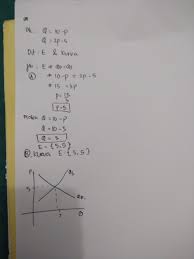 Dik Q = 10 - P
Q = 2P - 5
Dit : E & kurva
Jb : E → QD = QS
→ 10 - P = 2P - 5
→ 15 = 3P
P = 15
P = 5
Q = 10 - P
Q = 10 - 5
Q = 5
E = {5,5}
kurva E {5,5}
P
QS
5
QD
Q